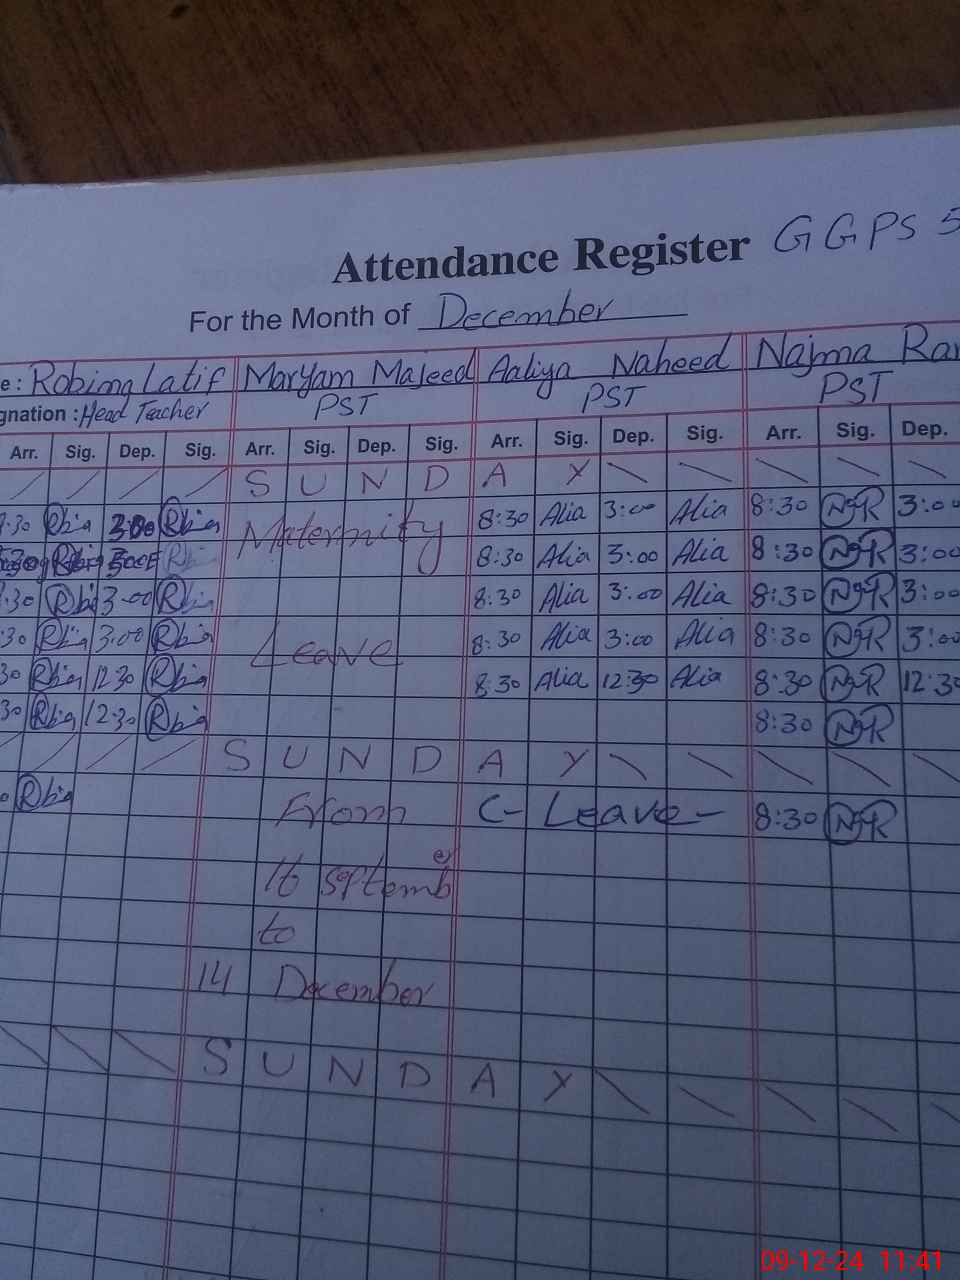 Attendance Register GGPS 5
For the Month of December
e: Robina Latif Maryam Majeed Aaliya Naheed Najma Ra
gnation : Head Teacher PST PST PST
Arr. Sig. Dep. Sig. Arr. Sig. Dep. Sig. Arr. Sig. Dep. Sig. Arr. Sig. Dep.
S U N D A Y
:30 Rbia 3:00 Rbia Maternity 8:30 Alia 3:00 Alia 8:30 NgR 3:00
Rbia 8:30 Alia 3:00 Alia 8:30 NgR 3:00
:30 Rbia 3-00 Rbia 8:30 Alia 3:00 Alia 8:30 NgR 3:00
:30 Rbia 3:00 Rbia Leave 8:30 Alia 3:00 Alia 8:30 NgR 3:00
30 Rbia 12:30 Rbia 8:30 Alia 12:30 Alia 8:30 NgR 12:30
30 Rbia 12:30 Rbia 8:30 NgR
S U N D A Y
Rbia From C- Leave- 8:30 NgR
16 September
to
14 December
S U N D A Y
09-12-24 11:41